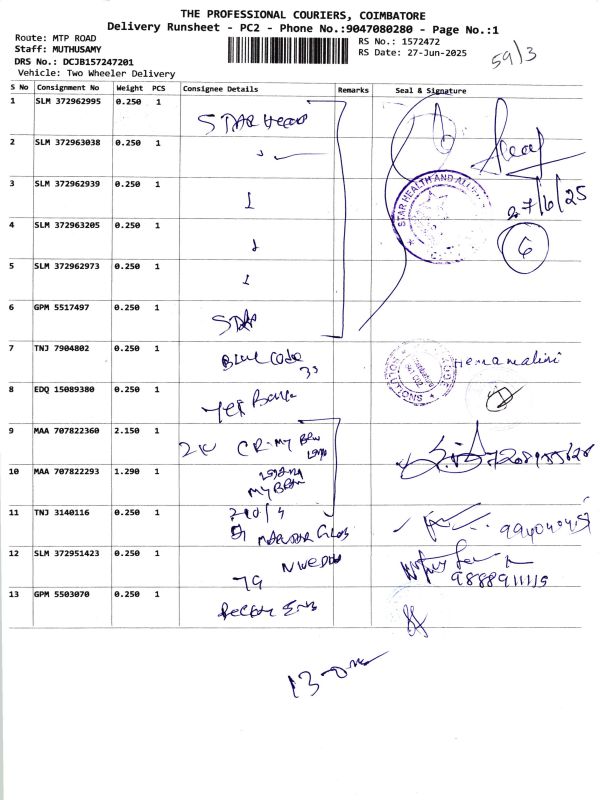 THE PROFESSIONAL COURIERS, COIMBATORE
Delivery Runsheet - PC2 - Phone No.:9047080280 - Page No.:1
Route: MTP ROAD
Staff: MUTHUSAMY
DRS No.: DCJB157247201
Vehicle: Two Wheeler Delivery
RS No.: 1572472
RS Date: 27-Jun-2025
59/3
S No Consignment No Weight PCS Consignee Details Remarks Seal & Signature
1 SLM 372962995 0.250 1 STAR
2 SLM 372963038 0.250 1
3 SLM 372962939 0.250 1
STAR HEALTH AND
27/6/25
4 SLM 372963205 0.250 1
6
5 SLM 372962973 0.250 1
6 GPM 5517497 0.250 1 STAR
7 TNJ 7904802 0.250 1 Blue Coda
33
Hemamalini
8 EDQ 15089380 0.250 1 Yet Bank
1
9 MAA 707822360 2.150 1 CR. My Ben
10 MAA 707822293 1.290 1
My Ben
11 TNJ 3140116 0.250 1
12 SLM 372951423 0.250 1
9888911115
13 GPM 5503070 0.250 1
13